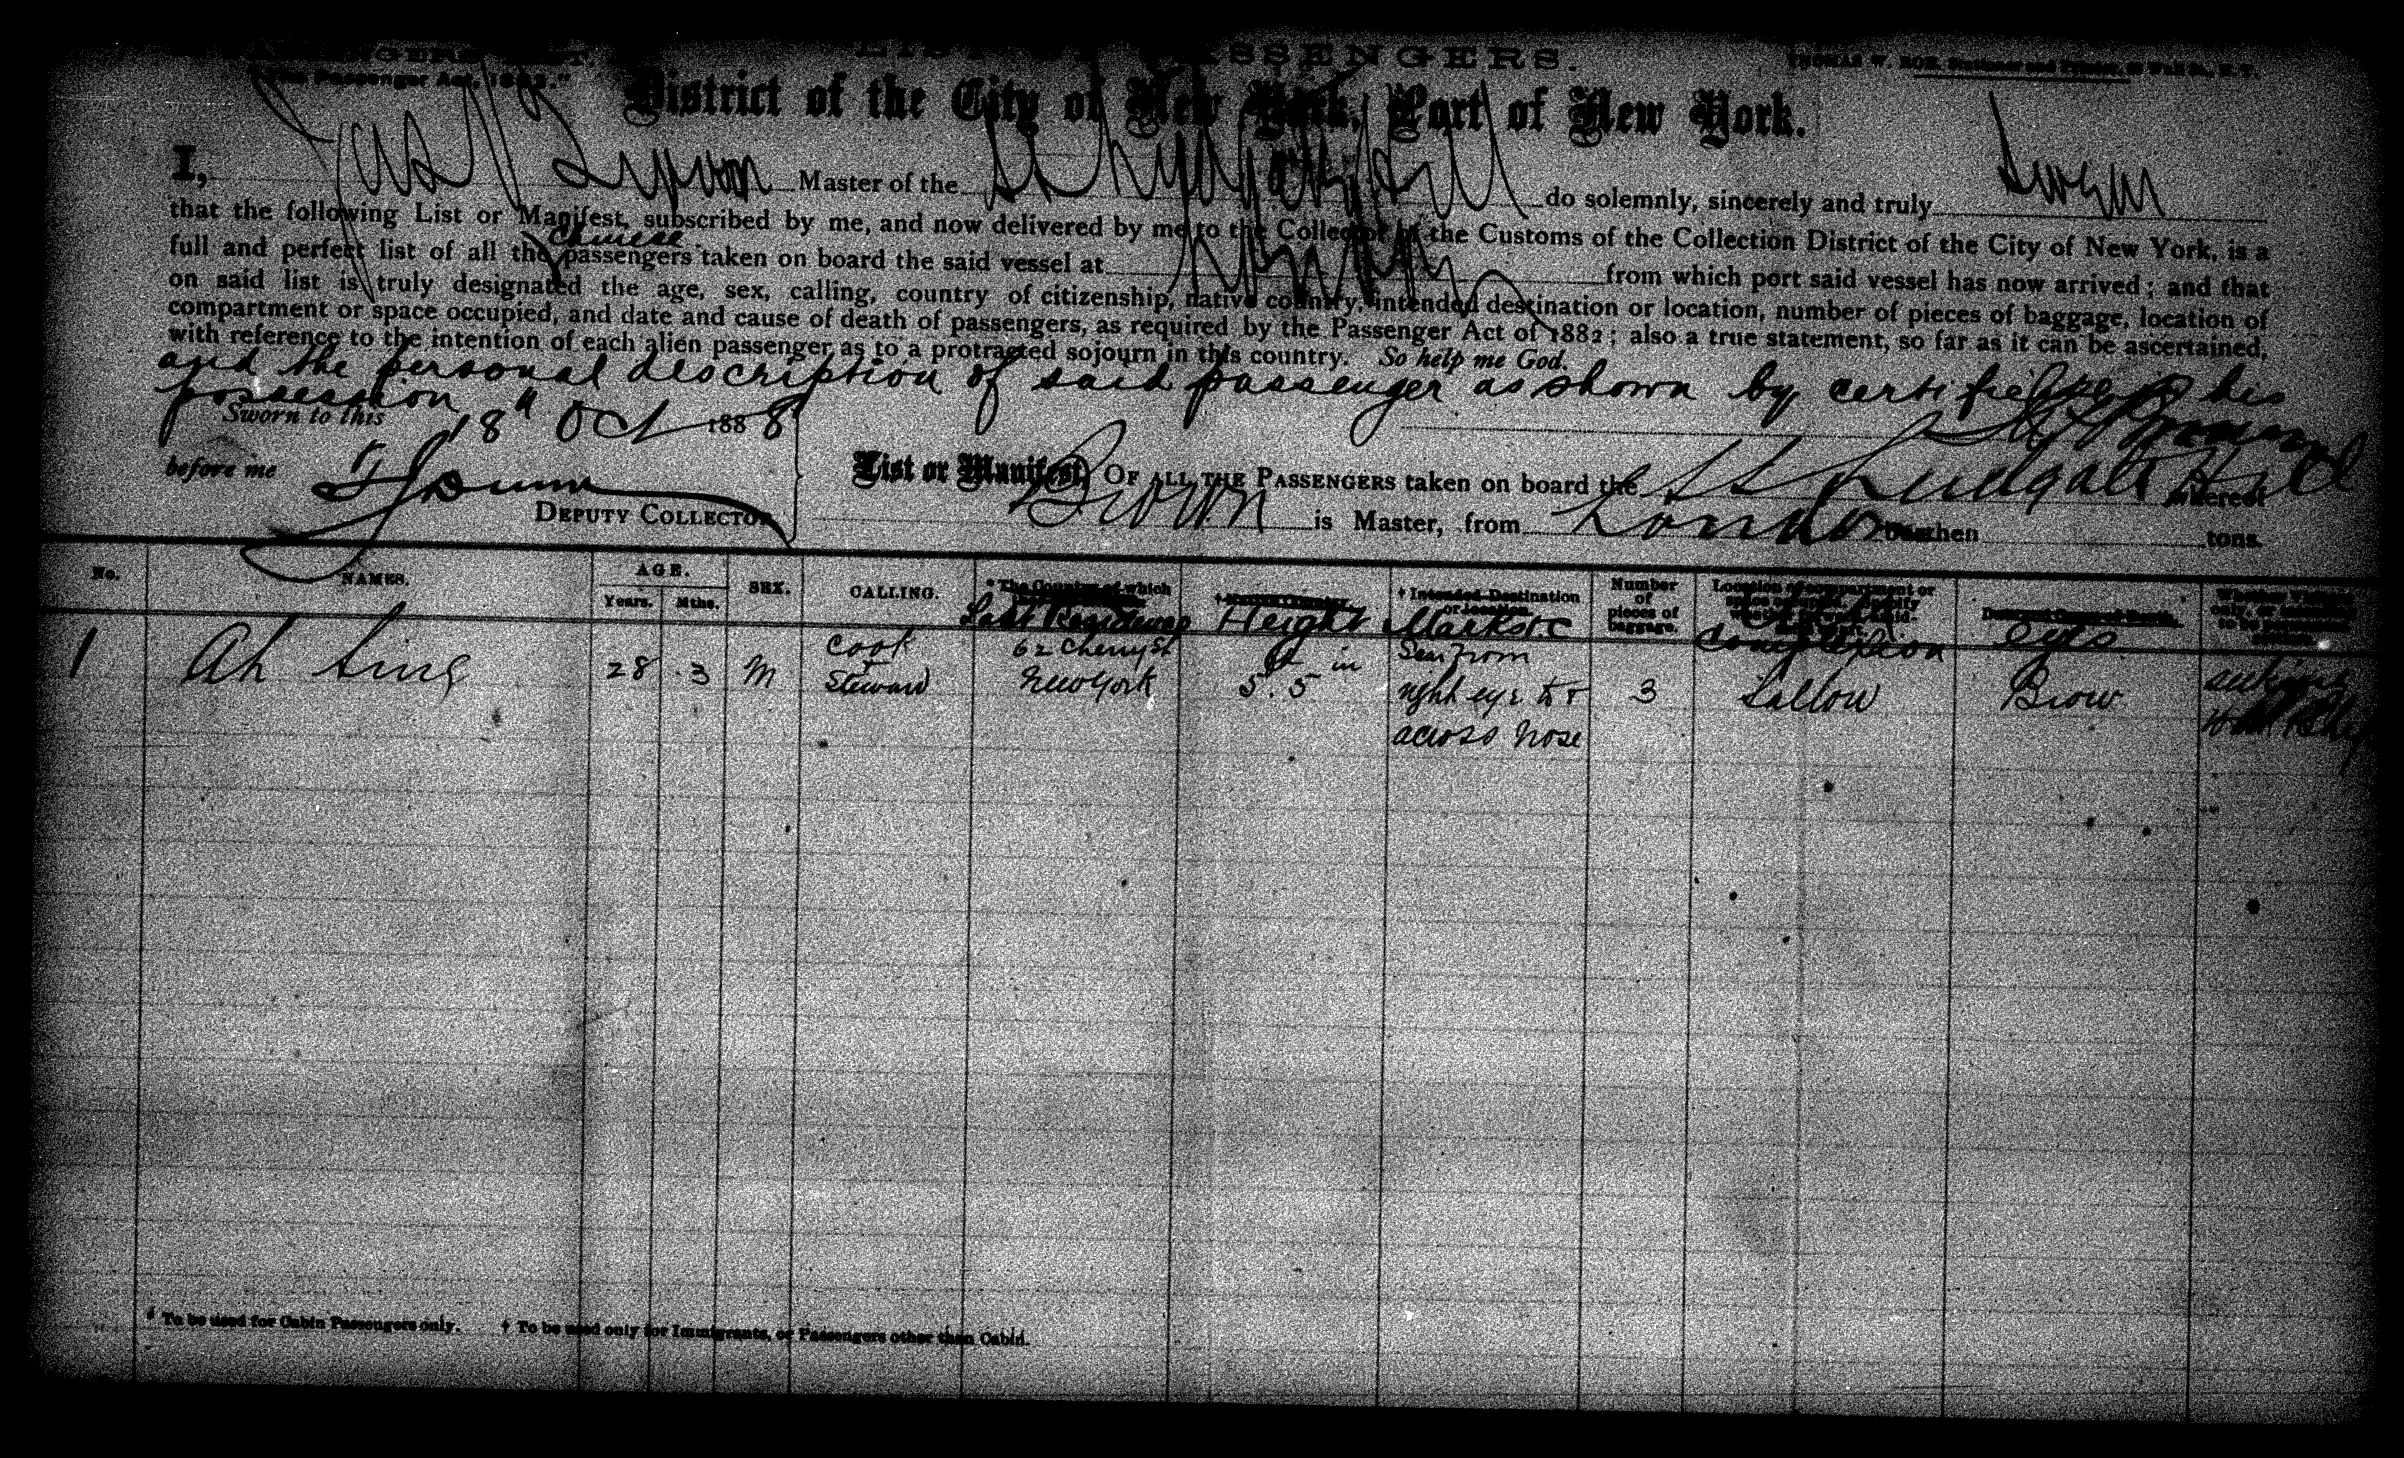 LIST PASSENGERS.
Passenger Act, 1882."
THOMAS W. ROE, Stationer and Printer,
District of the City of New York, Port of New York.
I, Master of the do solemnly, sincerely and truly
that the following List or Manifest, subscribed by me, and now delivered by me to the Collector of the Customs of the Collection District of the City of New York, is a
chinese
full and perfect list of all the passengers taken on board the said vessel at from which port said vessel has now arrived; and that
on said list is truly designated the age, sex, calling, country of citizenship, native country, intended destination or location, number of pieces of baggage, location of
compartment or space occupied, and date and cause of death of passengers, as required by the Passenger Act of 1882; also a true statement, so far as it can be ascertained,
with reference to the intention of each alien passenger as to a protracted sojourn in this country. So help me God.
and the personal description of said passenger as shown by certificate in his
possession
Sworn to this 18" Oct 1888
before me
DEPUTY COLLECTOR
List or Manifest, OF ALL THE PASSENGERS taken on board the Ludgate Hill whereof
Brown is Master, from London Burthen tons.
No. NAMES. AGE. Years. Mths. SEX. CALLING. * The Country of which Last Residence Height † Intended Destination or location. Marks &c Number of pieces of baggage. Complexion eyes
1 Ah Sing 28 3 M Cook & Steward 62 Cherry St New York 5 ft 5 in Scar from right eye to & across nose 3 Sallow Brow
* To be used for Cabin Passengers only. † To be used only for Immigrants, or Passengers other than Cabin.